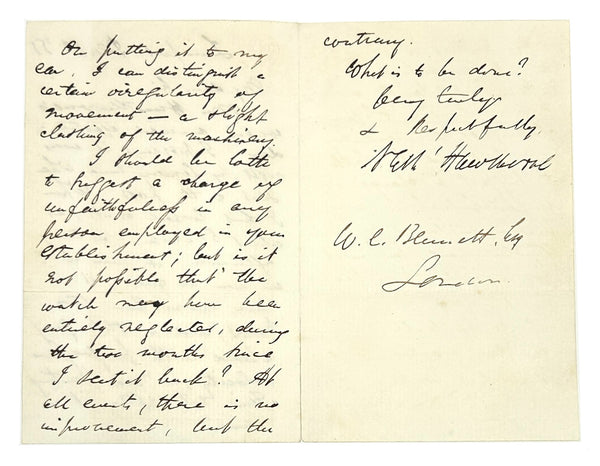 On putting it to my
ear, I can distinguish a
certain irregularity of
movement — a slight
clashing of the machinery.
I should be loth
to suggest a charge of
unfaithfulness in any
person employed in your
establishment; but is it
not possible that the
watch may have been
entirely neglected, during
the two months since
I sent it back? At
all events, there is no
improvement, but the
contrary.
What is to be done?
Very truly
& Respectfully
Nath' Hawthorne
W. C. Bennett, Esq
London.